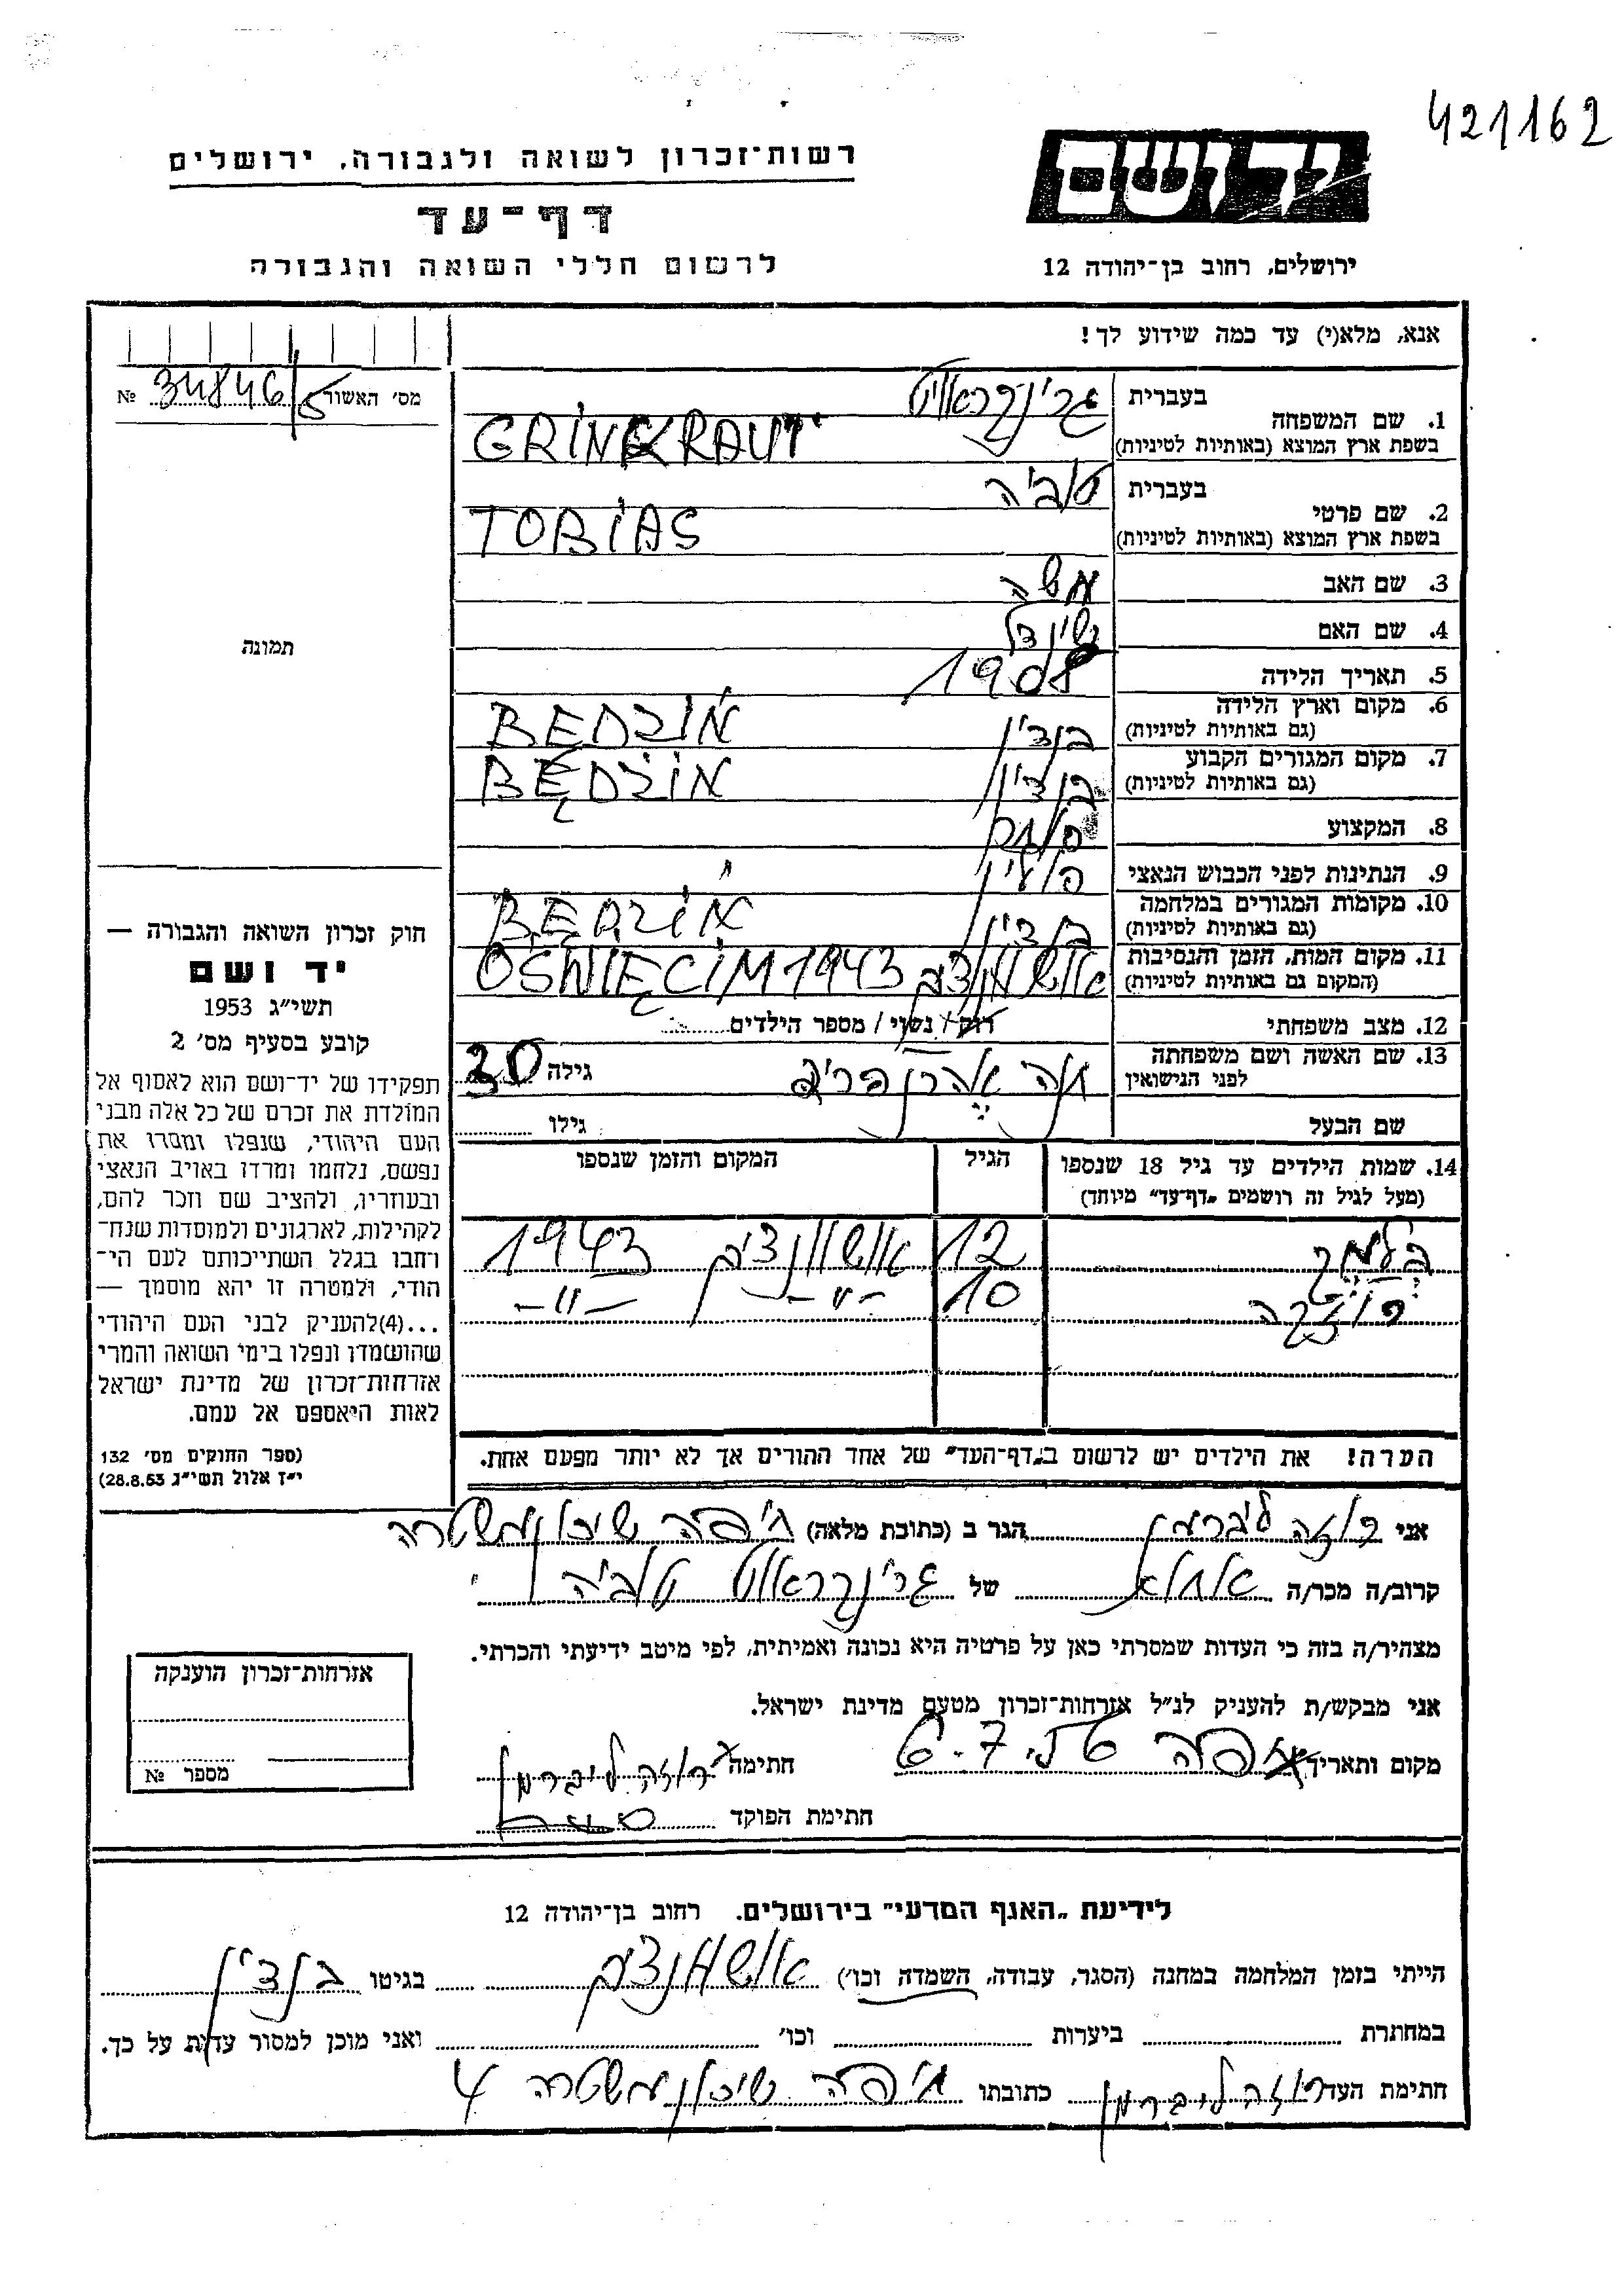 421162
רשות־זכרון לשואה ולגבורה, ירושלים
יד ושם
דף־עד
לרשום חללי השואה והגבורה
ירושלים, רחוב בן־יהודה 12
אנא, מלא(י) עד כמה שידוע לך!
מס׳ האשור 34846/5 №
1. שם המשפחה
בעברית גרינקראוט
בשפת ארץ המוצא (באותיות לטיניות) GRINKRAUT
2. שם פרטי
בעברית טוביה
בשפת ארץ המוצא (באותיות לטיניות) TOBIAS
3. שם האב משה
4. שם האם שיינדל
5. תאריך הלידה 1908
6. מקום וארץ הלידה
(גם באותיות לטיניות) בנדין BEDZIN
7. מקום המגורים הקבוע
(גם באותיות לטיניות) בנדין BĘDZIN
8. המקצוע
9. הנתינות לפני הכבוש הנאצי פולין
10. מקומות המגורים במלחמה
(גם באותיות לטיניות) בנדין BĘDZIN
11. מקום המות, הזמן והנסיבות
(המקום גם באותיות לטיניות) אושוונצים OŚWIĘCIM 1943
12. מצב משפחתי רוק/ נשוי / מספר הילדים
13. שם האשה ושם משפחתה
לפני הנישואין חנה אהרנפריד גילה 30
שם הבעל גילו
תמונה
חוק זכרון השואה והגבורה —
יד ושם
תשי״ג 1953
קובע בסעיף מס׳ 2
תפקידו של יד־ושם הוא לאסוף אל
המולדת את זכרם של כל אלה מבני
העם היהודי, שנפלו ומסרו את
נפשם, נלחמו ומרדו באויב הנאצי
ובעוזריו, ולהציב שם וזכר להם,
לקהילות, לארגונים ולמוסדות שנח־
רחבו בגלל השתייכותם לעם הי־
הודי, ולמטרה זו יהא מוסמך —
...(4)להעניק לבני העם היהודי
שהושמדו ונפלו בימי השואה והמרי
אזרחות־זכרון של מדינת ישראל
לאות היאספם אל עמם.
(ספר החוקים מס׳ 132
י״ז אלול תשי״ג 28.8.53)
14. שמות הילדים עד גיל 18 שנספו
(מעל לגיל זה רושמים „דף־עד״ מיוחד)
הגיל
המקום והזמן שנספו
12 אושוונצים 1943
10 -״- -״-
הערה! את הילדים יש לרשום ב„דף־העד״ של אחד ההורים אך לא יותר מפעם אחת.
אני רוזה ליברמן הגר ב (כתובת מלאה) חיפה שיכון משטרה
קרוב/ה מכר/ה של גרינקראוט טוביה
מצהיר/ה בזה כי העדות שמסרתי כאן על פרטיה היא נכונה ואמיתית, לפי מיטב ידיעתי והכרתי.
אני מבקש/ת להעניק לנ״ל אזרחות־זכרון מטעם מדינת ישראל.
מקום ותאריך חיפה חתימה רוזה ליברמן
חתימת הפוקד
אזרחות־זכרון הוענקה
מספר №
לידיעת „האגף המדעי״ בירושלים. רחוב בן־יהודה 12
הייתי בזמן המלחמה במחנה (הסגר, עבודה, השמדה וכו׳) אושוונצים בגיטו בנדין
במחתרת ביערות וכו׳ ואני מוכן למסור עדות על כך.
חתימת העד רוזה ליברמן כתובתו חיפה שיכון משטרה 4